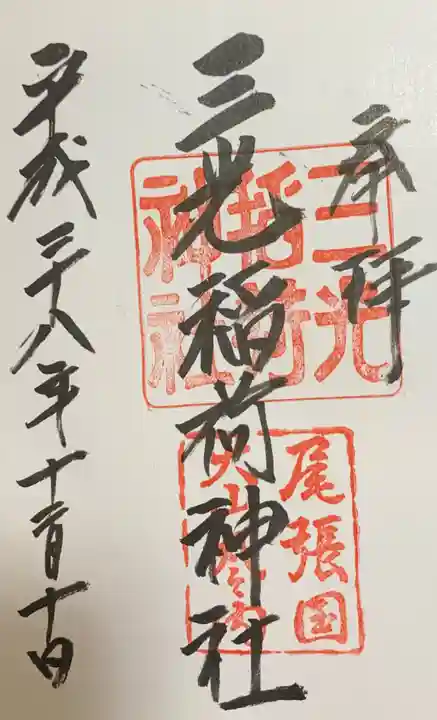 奉拝
三光稲荷神社
平成二十八年十一月十日
三光
稲荷
神社
尾張国
犬山